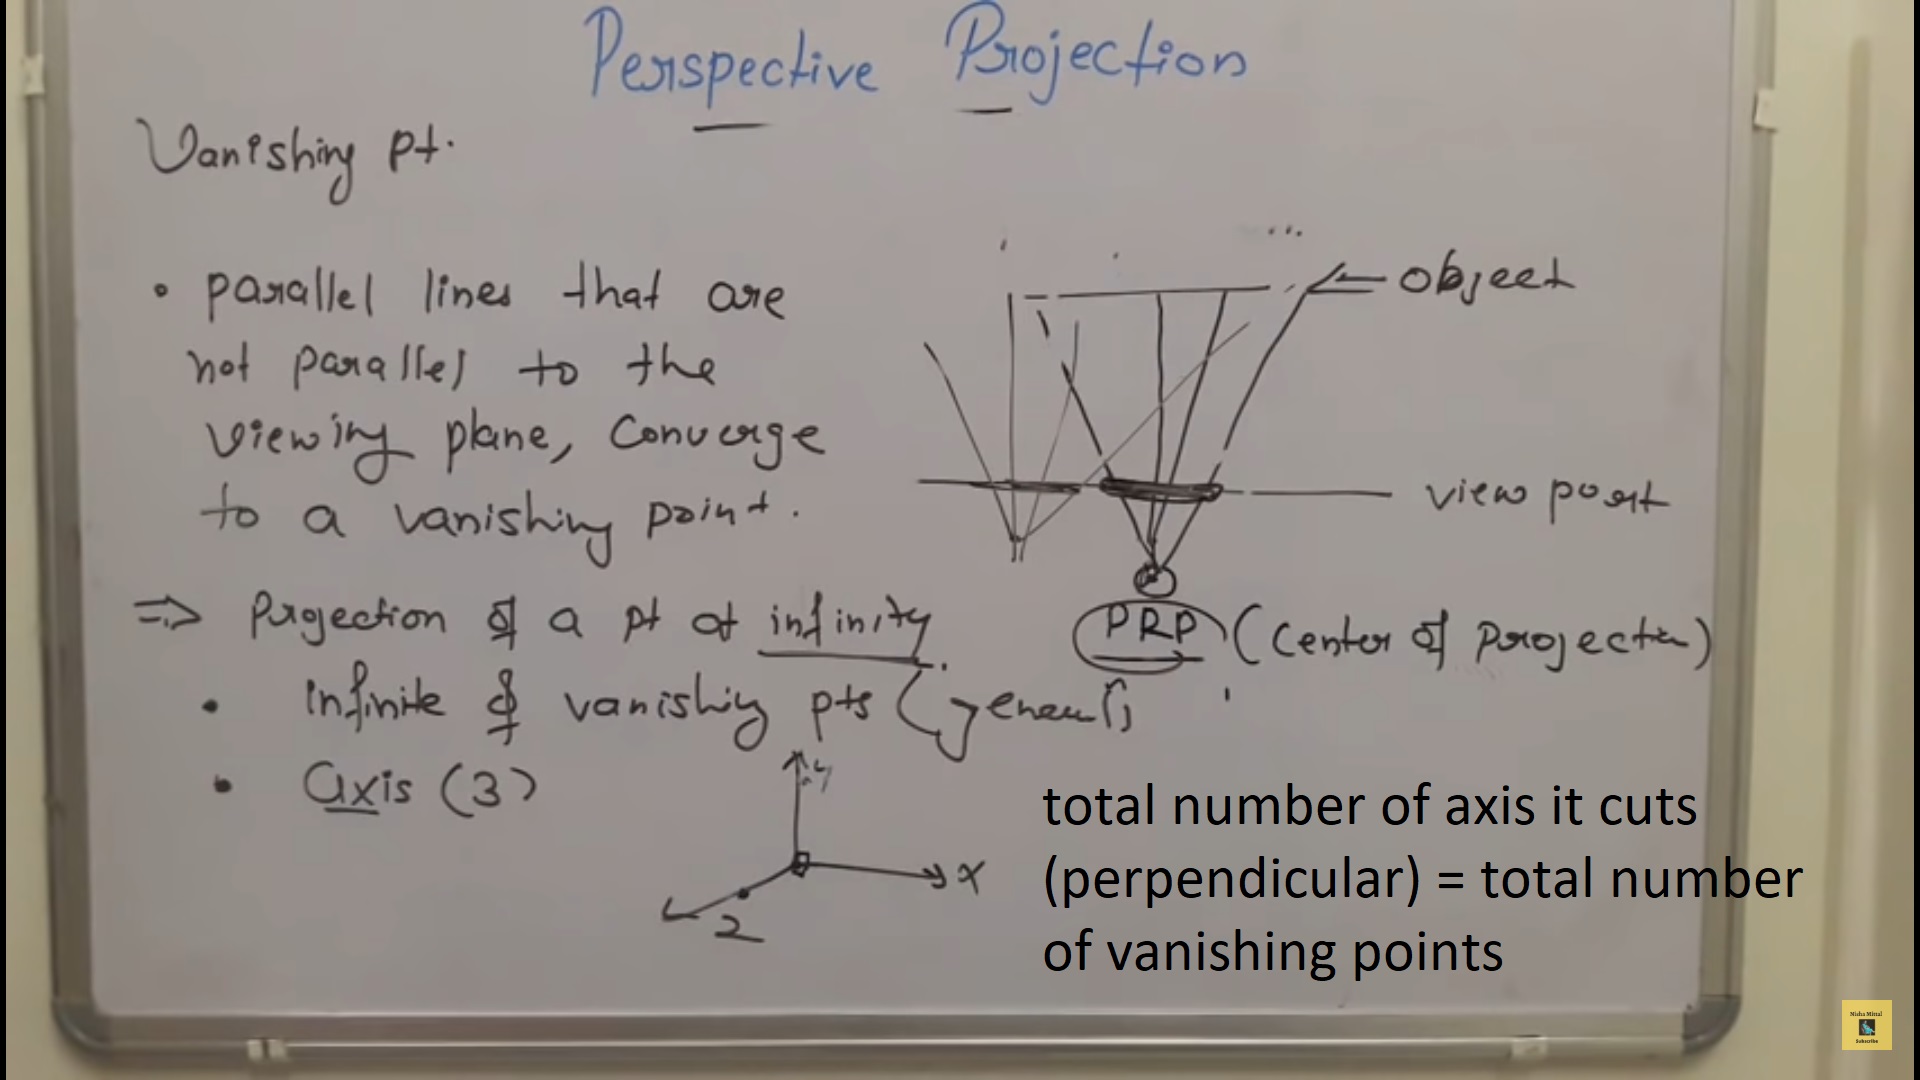 Perspective Projection
Vanishing pt.
• parallel lines that are
not parallel to the
viewing plane, Converge
to a vanishing point.
⇒ Projection of a pt at infinity.
• Infinite of vanishing pts (general)
• axis (3)
object
view port
PRP (Center of Projection)
y
x
z
total number of axis it cuts
(perpendicular) = total number
of vanishing points
Nisha Mittal
Subscribe